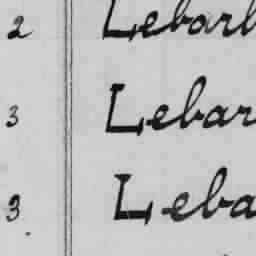 2 Lebarb
3 Lebar
3 Leba